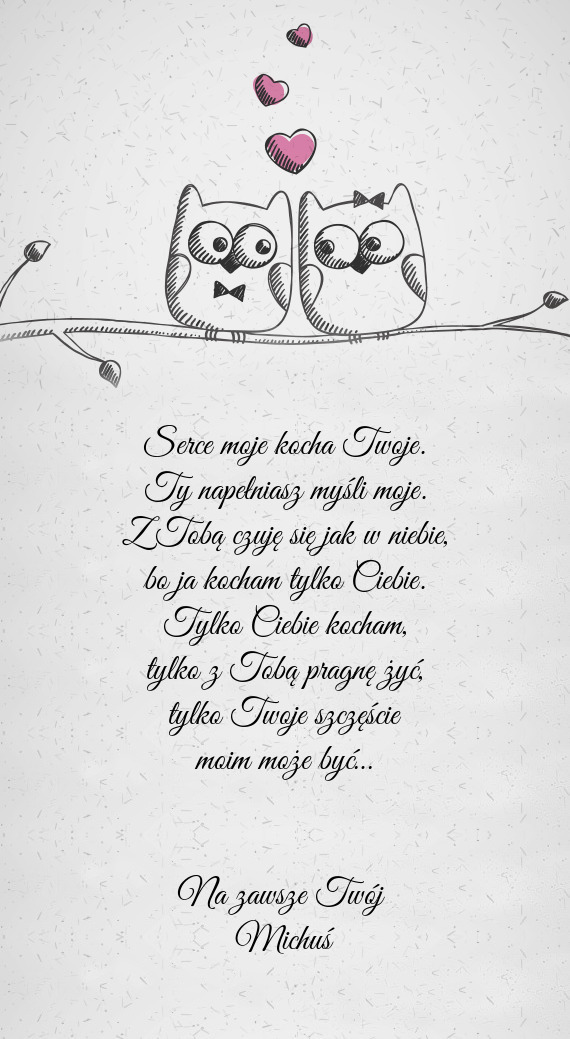 Serce moje kocha Twoje.
Ty napełniasz myśli moje.
Z Tobą czuję się jak w niebie,
bo ja kocham tylko Ciebie.
Tylko Ciebie kocham,
tylko z Tobą pragnę żyć,
tylko Twoje szczęście
moim może być...
Na zawsze Twój
Michuś